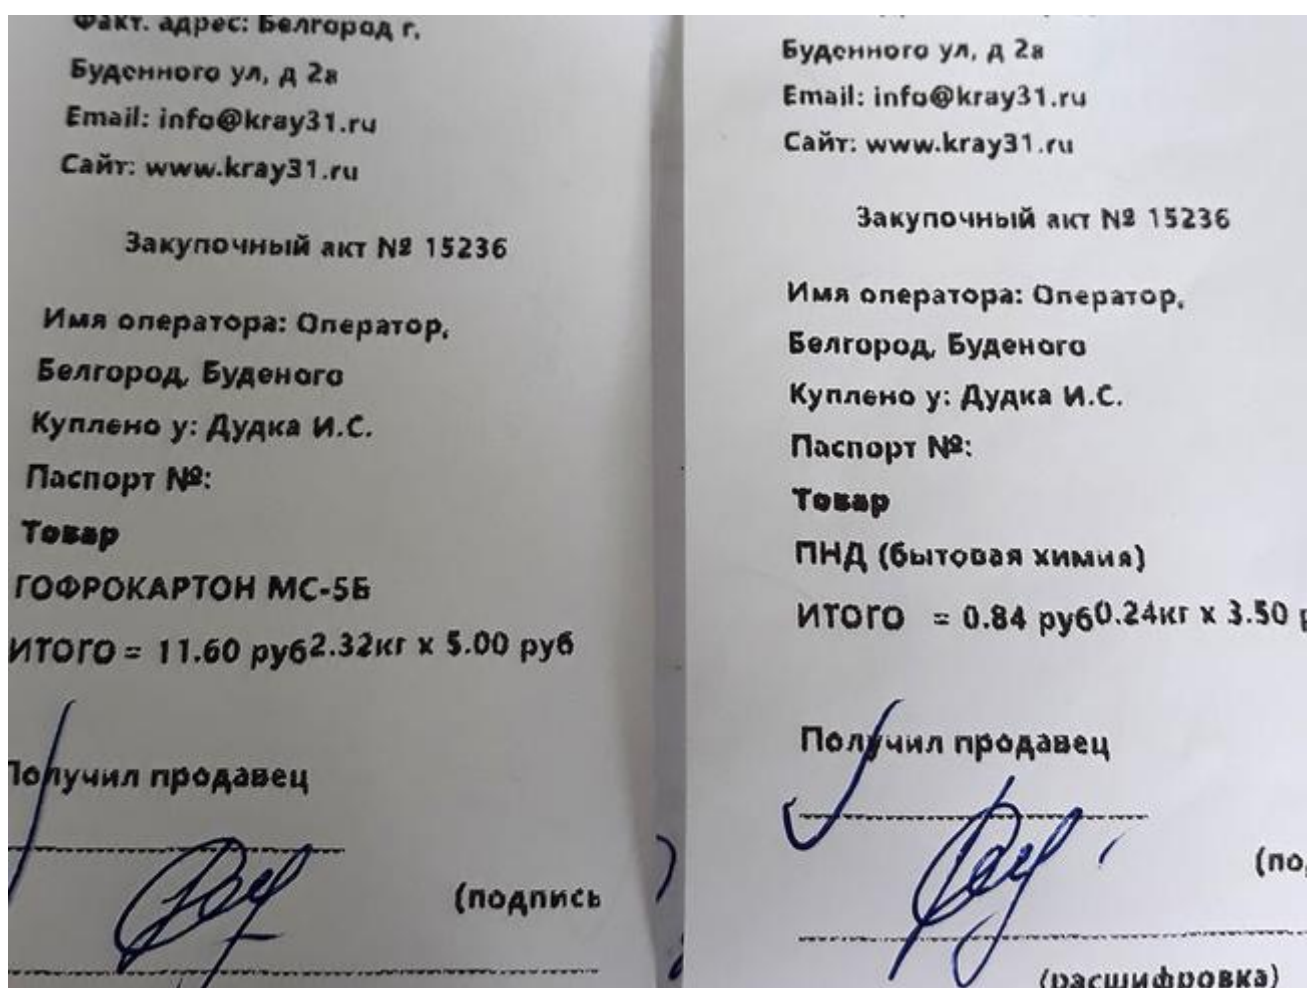 Факт. адрес: Белгород г,
Буденного ул, д 2а
Email: info@kray31.ru
Сайт: www.kray31.ru
Закупочный акт № 15236
Имя оператора: Оператор,
Белгород, Буденого
Куплено у: Дудка И.С.
Паспорт №:
Товар
ГОФРОКАРТОН МС-5Б
ИТОГО = 11.60 руб2.32кг x 5.00 руб
Получил продавец
(подпись
Буденного ул, д 2а
Email: info@kray31.ru
Сайт: www.kray31.ru
Закупочный акт № 15236
Имя оператора: Оператор,
Белгород, Буденого
Куплено у: Дудка И.С.
Паспорт №:
Товар
ПНД (бытовая химия)
ИТОГО = 0.84 руб0.24кг x 3.50
Получил продавец
(по
(расшифровка)